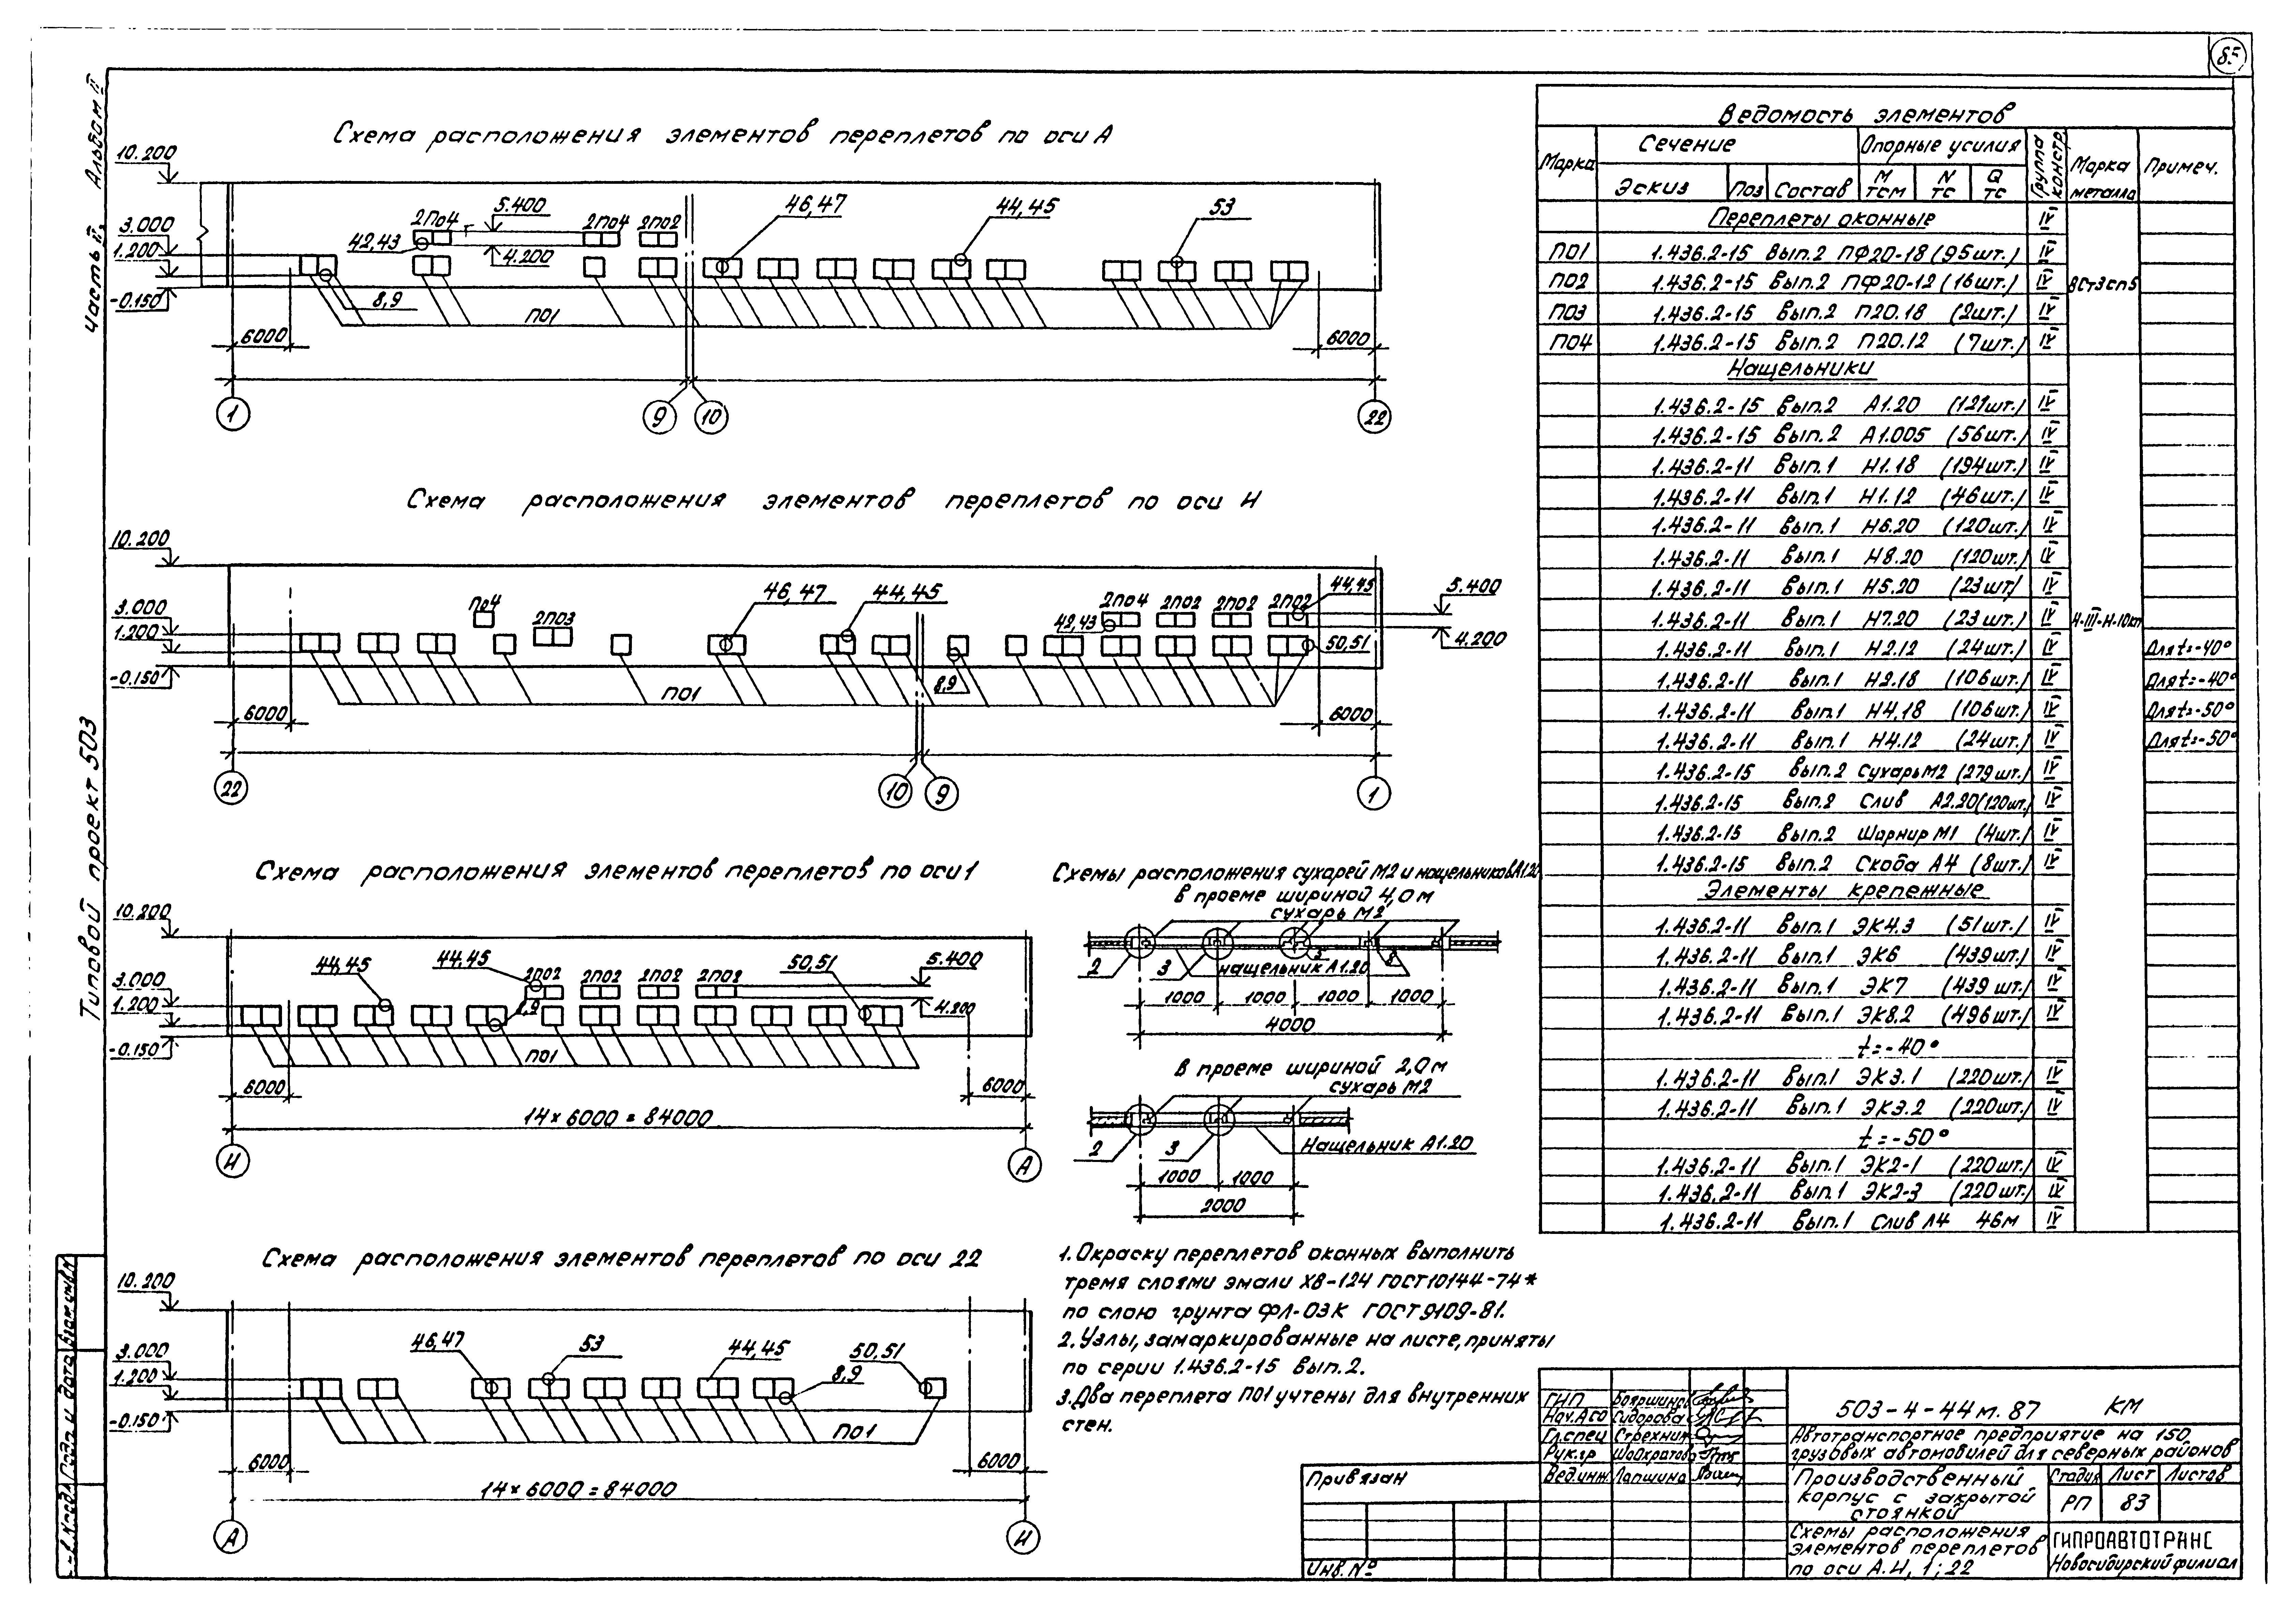 85
Альбом II
Часть II
Типовой проект 503
Схема расположения элементов переплетов по оси А
10.200
3.000
1.200
-0.150
2ПО4
5.400
2ПО4
2ПО2
42,43
4.200
46,47
44,45
53
8,9
ПО1
6000
6000
1
9
10
22
Схема расположения элементов переплетов по оси И
10.200
3.000
1.200
-0.150
ПО4
2ПО3
46,47
44,45
2ПО4
2ПО2
2ПО2
2ПО2
44,45
5.400
42,43
4.200
50,51
8,9
ПО1
6000
6000
22
10
9
1
Схема расположения элементов переплетов по оси 1
10.200
3.000
1.200
-0.150
44,45
44,45
2ПО2
2ПО2
2ПО2
2ПО2
50,51
5.400
4.200
8,9
ПО1
6000
6000
14×6000=84000
И
А
Схемы расположения сухарей М2 и нащельников А1.20
в проеме шириной 4,0м
сухарь М2
2
3
нащельник А1.20
1000
1000
1000
1000
4000
в проеме шириной 2,0м
сухарь М2
2
3
Нащельник А1.20
1000
1000
2000
Схема расположения элементов переплетов по оси 22
10.200
3.000
1.200
-0.150
46,47
53
44,45
50,51
8,9
ПО1
6000
6000
14×6000=84000
А
И
1. Окраску переплетов оконных выполнить
тремя слоями эмали ХВ-124 ГОСТ10144-74*
по слою грунта ФЛ-03К ГОСТ9109-81.
2. Узлы, замаркированные на листе, приняты
по серии 1.436.2-15 вып.2.
3. Два переплета ПО1 учтены для внутренних
стен.
Ведомость элементов
Марка Сечение Опорные усилия Группа констр. Марка металла Примеч.
Эскиз Поз Состав М тсм N тс Q тс
Переплеты оконные IV
ПО1 1.436.2-15 вып.2 ПФ20-18 (95шт.) IV
ПО2 1.436.2-15 вып.2 ПФ20-12 (16шт.) IV ВСт3сп5
ПО3 1.436.2-15 вып.2 П20.18 (2шт.) IV
ПО4 1.436.2-15 вып.2 П20.12 (7шт.) IV
Нащельники
1.436.2-15 вып.2 А1.20 (121шт.) IV
1.436.2-15 вып.2 А1.005 (56шт.) IV
1.436.2-11 вып.1 Н1.18 (194шт.) IV
1.436.2-11 вып.1 Н1.12 (46шт.) IV
1.436.2-11 вып.1 Н6.20 (120шт.) IV
1.436.2-11 вып.1 Н8.20 (120шт.) IV
1.436.2-11 вып.1 Н5.20 (23шт) IV
1.436.2-11 вып.1 Н7.20 (23шт.) IV
1.436.2-11 вып.1 Н2.12 (24шт.) IV Для t=-40°
1.436.2-11 вып.1 Н2.18 (106шт.) IV Для t=-40°
1.436.2-11 вып.1 Н4.18 (106шт.) IV Для t=-50°
1.436.2-11 вып.1 Н4.12 (24шт.) IV Для t=-50°
1.436.2-15 вып.2 Сухарь М2 (279шт.) IV
1.436.2-15 вып.2 Слив А2.20 (120шт.) IV
1.436.2-15 вып.2 Шарнир М1 (4шт.) IV
1.436.2-15 вып.2 Скоба А4 (8шт.) IV
Элементы крепежные
1.436.2-11 вып.1 ЭК4.3 (51шт.) IV
1.436.2-11 вып.1 ЭК6 (439шт.) IV
1.436.2-11 вып.1 ЭК7 (439шт.) IV
1.436.2-11 вып.1 ЭК8.2 (496шт.) IV
t=-40°
1.436.2-11 вып.1 ЭК3.1 (220шт.) IV
1.436.2-11 вып.1 ЭК3.2 (220шт.) IV
t=-50°
1.436.2-11 вып.1 ЭК2-1 (220шт.) IV
1.436.2-11 вып.1 ЭК2-3 (220шт.) IV
1.436.2-11 вып.1 Слив А4 46м IV
Привязан
Инв. №
ГИП
Нач.АСО Сидорова
Гл.спец Стрехнин
Рук.гр
Вед.инж. Лапшина
503-4-44м.87 КМ
Автотранспортное предприятие на 150
грузовых автомобилей для северных районов
Производственный
корпус с закрытой
стоянкой
Стадия Лист Листов
РП 83
Схемы расположения
элементов переплетов
по оси А.И, 1; 22
ГИПРОАВТОТРАНС
Новосибирский филиал
Подп. и дата